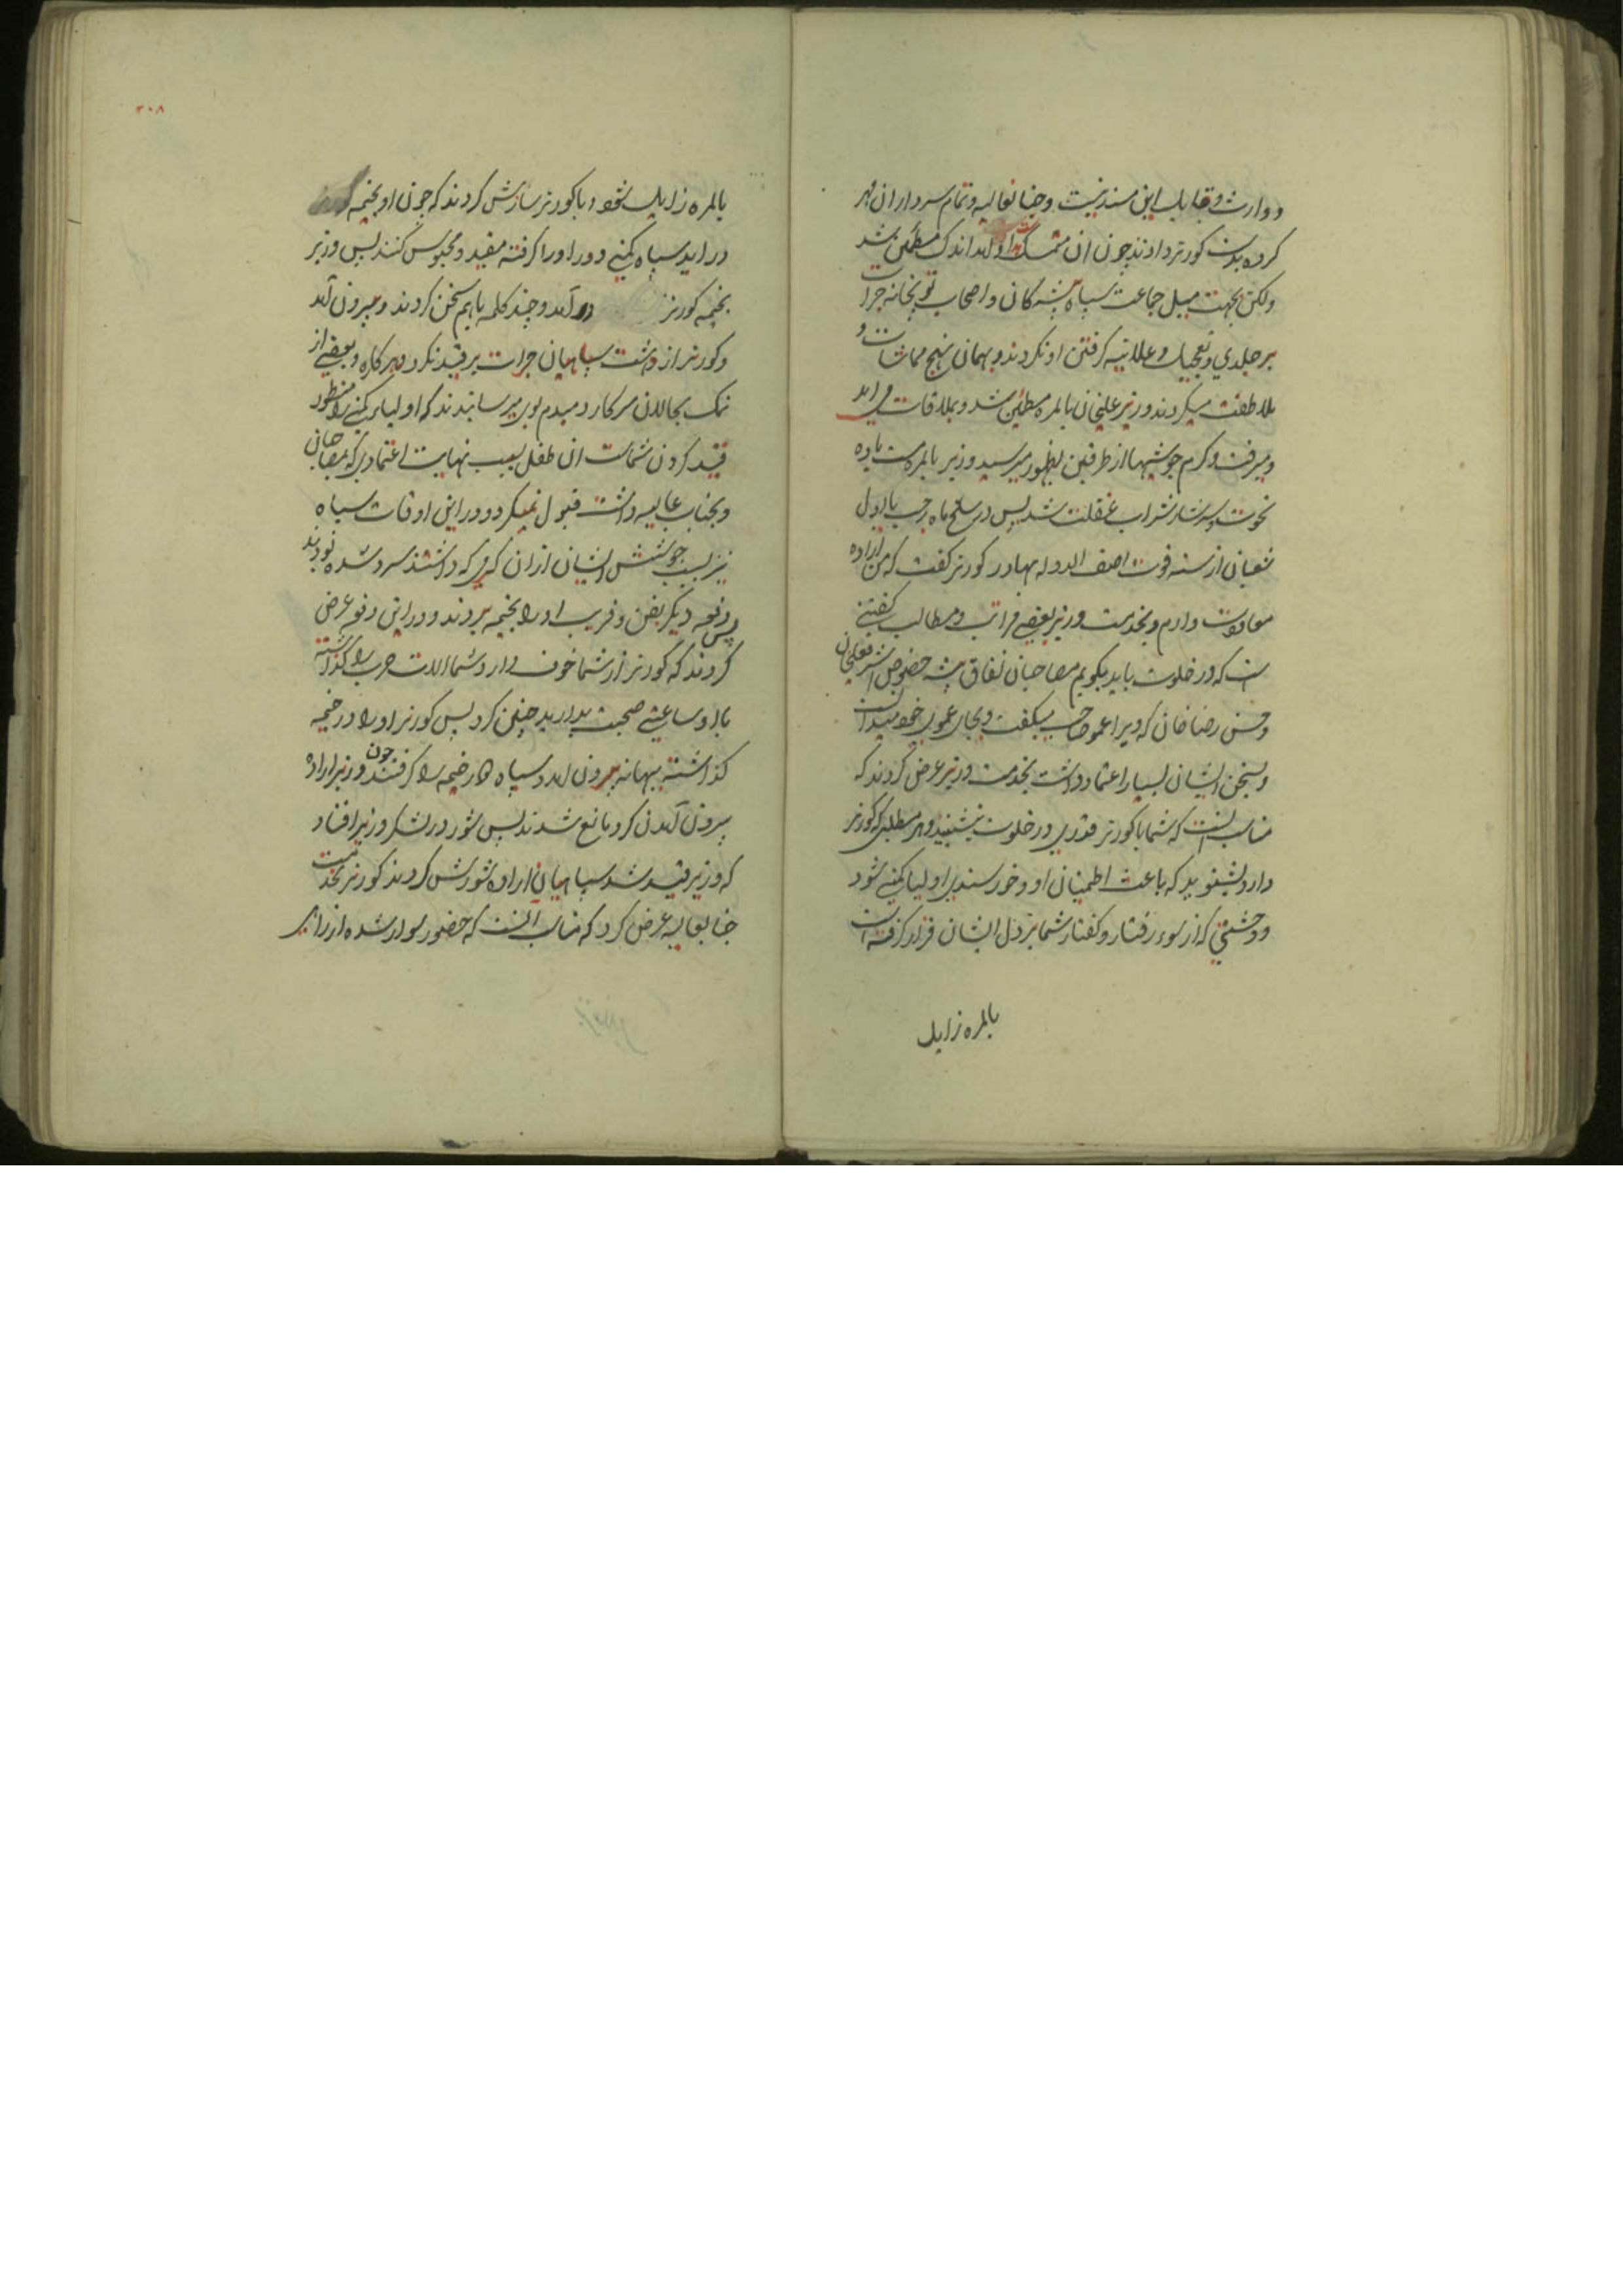 و وارث و قابل این مسند نیست و جنابعالیه و تمام سرداران مهر
کرده بدست کورنر دادند چون ان تمسک باو امد اندک مطمئن شد
ولکن بجهت میل جماعت سپاه پیشه کان و اصحاب توپخانه جرات
بر جلدی و تعجیل و علانیه کرفتن او نکردند و بهمان نهج مماشات و
ملاطفت میکردند وزیر علیخان بالمره مطمئن شد و بملاقات می امد
و میرفت و کرم جوشیها از طرفین بظهور میرسید وزیر بالمره مست باده
نخوت و سرشار شراب غفلت شد پس در سلخ ماه رجب یا اول
شعبان از سنه فوت اصف الدوله بهادر کورنر کفت که من اراده
معاودت دارم و بخدمت وزیر بعضی مراتب و مطالب کفتنی
است که در خلوت باید بکویم مصاحبان نفاق پیشه خصوص اشرفعلیخان
و حسن رضا خان که ویرا عمو صاحب میکفت و بجای عموی خود میدانست
و بسخن ایشان بسیار اعتماد داشت بخدمت وزیر عرض کردند که
مناسب انست که شما با کورنر قدری در خلوت بنشینید و هر مطلبی که کورنر
دارد بشنوید که باعث اطمینان او و خورسندی اولیا کمپنی شود
و وحشتی که از سوء رفتار و کفتار شما بر دل ایشان قرار کرفته است
بالمره زایل
۳۰۸
بالمره زایل شود و با کورنر سازش کردند که چون او بخیمه
در اید سپاه کمپنی دور اورا کرفته مقید و محبوس کنند پس وزیر
بخیمه کورنر در آمد و چند کلمه باهم سخن کردند و بیرون آمد
و کورنر از دهشت سپاهیان جرات بر قید نکرد هرکاره و بعضی از
نمک بحلالان سرکار دمبدم بوی میرسانیدند که اولیای کمپنی را منظور
قید کردن شماست ان طفل بسبب نهایت اعتمادی که بمصاحبان
و بجناب عالیه داشت قبول نمیکرد و در این اوقات سپاه
نیز بسبب جوشش ایشان ازان کرمی که داشتند سرد شده بودند
پس دفعه دیکر بفن و فریب او را بخیمه بردند و در این دفعه عرض
کردند که کورنر از شما خوف دارد شما الات حرب را کذاشته
با او ساعتی صحبت بدارید چنین کرد پس کورنر او را در خیمه
کذاشته ببهانه بیرون امد و سپاه دور خیمه را کرفتند چون وزیر اراده
بیرون آمدن کرد مانع شدند پس شور در لشکر وزیر افتاد
که وزیر قید شد سپاهیان اراده شورش کردند کورنر بخدمت
جنابعالیه عرض کرد که مناسب انست که حضور سوار شده از زبان